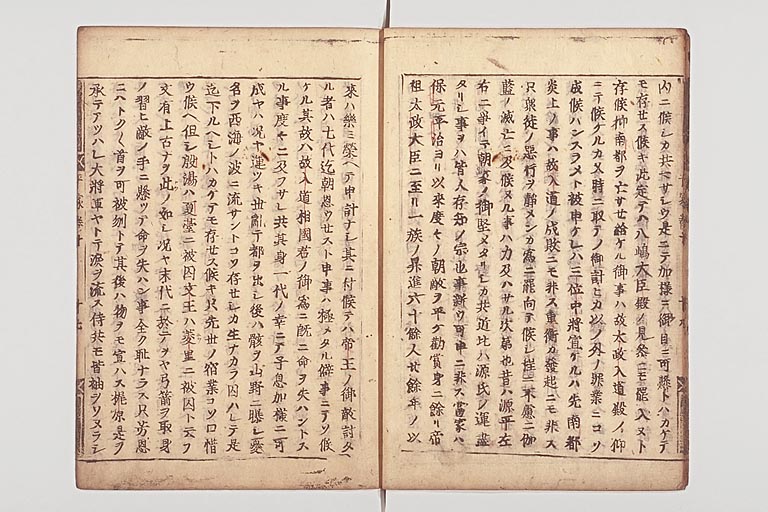 内ニ候シカ共ニサシウ是ニテ加様ニ御目ニ可懸トハカケテ
モ存セス候キ此定テハ八嶋大臣殿ノ見参ニモ罷入ヌト
存候抑南都ヲ亡サセ給ケル御事ハ故太政入道殿ノ仰
ニテ候ケルカ又時ニ取テノ御計ヒカ以ノ外ノ罪業ニコソ
成候ハンスラメト被申ケレハ三位中将宣ケルハ先南都
炎上ノ事ハ故入道ノ成敗ニモ非ス重衡カ發起ニモ非ス
只衆徒ノ悪行ヲ静メンカ為ニ罷向テ候シ程ニ不慮ニ伽
藍ノ滅亡ニ及候ヌル事ハ力及ハサル次第也昔ハ源平左
右ニ争イテ朝家ノ御堅メタリシカ共近比ハ源氏ノ運盡
タリシ事ヲハ皆人存知ノ宗也事新ウ可申ニ非ス當家ハ
保元平治ヨリ以来度々ノ朝敵ヲ平ケ勸賞身ニ餘リ帝
祖太政大臣ニ至リ一族ノ昇進六十餘人廿餘年ノ以
来ハ樂ミ榮ヘテ申計ナシ其ニ付候テハ帝王ノ御敵討タ
ル者ハ七代迄朝恩ウセスト申事ハ極メタル僻事ニテソ候
ケル其故ハ故入道相國君ノ御為ニ既ニ命ヲ失ハントス
ル事度々ニ及フサレ共其身一代ノ幸ニテ子息加様ニ可
成ヤハ況ヤ運ツキ世乱テ都ヲ出シ後ハ骸ヲ山野ニ曝シ憂
名ヲ西海ノ波ニ流サントコソ存セシカ生ナカラ囚ハレテ是
迄下ルヘシトハカケテモ存セス候キ只先世ノ宿業コソ口惜
ウ候ヘ但シ殷湯ハ夏臺ニ被囚文王ハ羑里ニ被囚ト云フ
文有上古ナヲ此ノ如シ況ヤ末代ニ於ニテヲヤ弓箭ヲ取身
ノ習ヒ敵ノ手ニ懸ツテ命ヲ失ハン事全ク耻ナラス只芳恩
ニハトクトク首ヲ可被刎トテ其後ハ物ヲモ宣ハス梶原是ヲ
承テアツハレ大将軍ヤトテ涙ヲ流ス侍共モ皆袖ヲソヌラシ